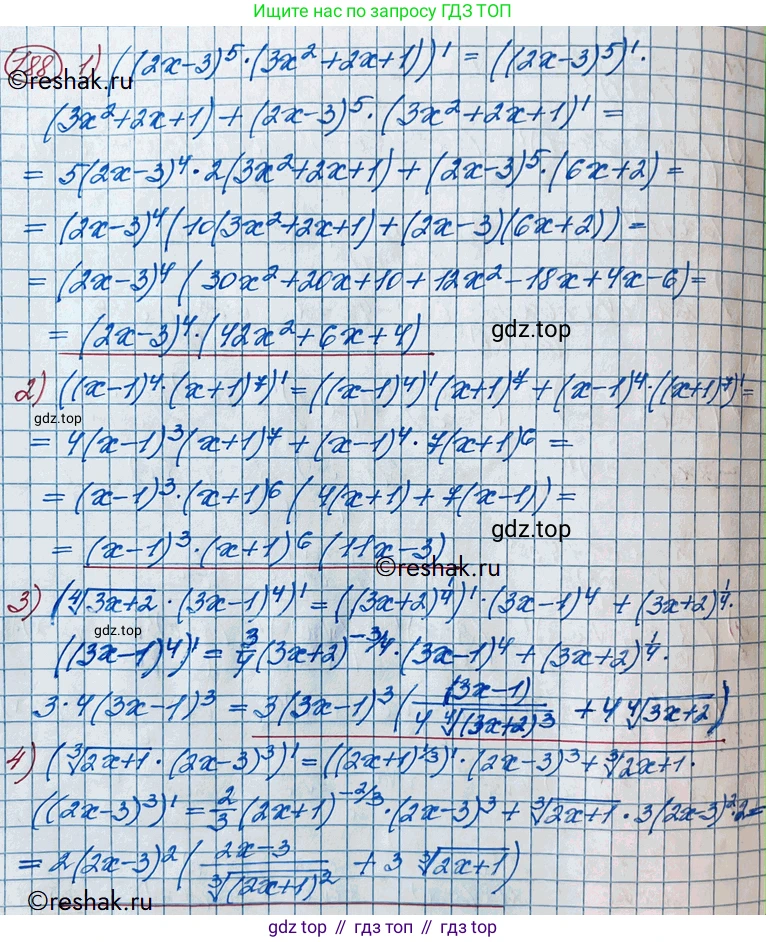 Ищите нас по запросу ГДЗ ТОП
188 1) ((2x-3)⁵·(3x²+2x+1))' = ((2x-3)⁵)'·
©reshak.ru
(3x²+2x+1)+(2x-3)⁵·(3x²+2x+1)' =
= 5(2x-3)⁴·2(3x²+2x+1)+(2x-3)⁵·(6x+2)=
= (2x-3)⁴(10(3x²+2x+1)+(2x-3)(6x+2))=
= (2x-3)⁴(30x²+20x+10+12x²-18x+4x-6)=
= (2x-3)⁴·(42x²+6x+4)
gdz.top
2) ((x-1)⁴·(x+1)⁷)'=((x-1)⁴)'(x+1)⁷+(x-1)⁴·((x+1)⁷)'=
gdz.top
= 4(x-1)³(x+1)⁷+(x-1)⁴·7(x+1)⁶ =
= (x-1)³·(x+1)⁶(4(x+1)+7(x-1))=
gdz.top
= (x-1)³·(x+1)⁶(11x-3)
©reshak.ru
3) (⁴√(3x+2)·(3x-1)⁴)'=((3x+2)^(1/4))'·(3x-1)⁴+(3x+2)^(1/4)·
gdz.top
((3x-1)⁴)'=3/4(3x+2)^(-3/4)·(3x-1)⁴+(3x+2)^(1/4)·
3·4(3x-1)³ = 3(3x-1)³((3x-1)/(4⁴√(3x+2)³)+4⁴√(3x+2))
4) (³√(2x+1)·(2x-3)³)'=((2x+1)^(1/3))'·(2x-3)³+³√(2x+1)·
((2x-3)³)'=2/3(2x+1)^(-2/3)·(2x-3)³+³√(2x+1)·3(2x-3)²·2=
= 2(2x-3)²((2x-3)/(³√(2x+1)²)+3³√(2x+1))
©reshak.ru
gdz top // гдз топ // gdz.top